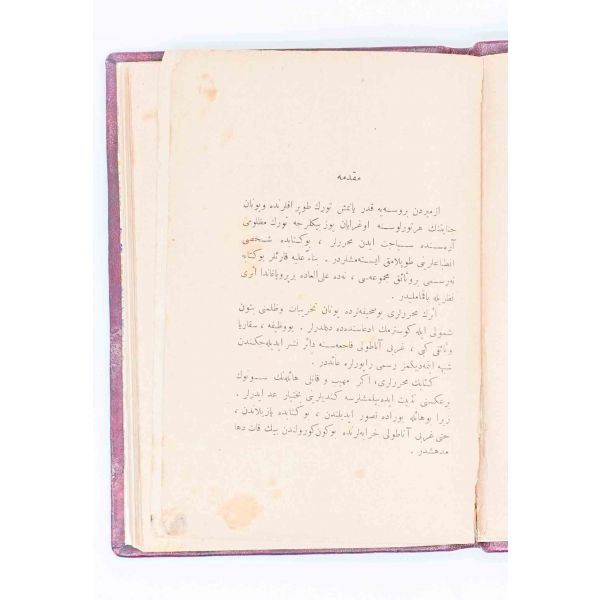 مقدمه
ازمیردن بروسه‌یه قدر یانمش تورك طوپراقلرنده و یونان
جنایتنك هرتورلوسنه اوغرایان یوز بیكلرجه تورك مظلومی
آره‌سنده سیاحت ایدن محررلر ، بوكتابده شخصی
انطباعلرینی طوپلامق ایسته‌مشلردر . بناءً علیه قارئلر بوكتابه
نه‌رسمی بروثائق مجموعه‌سی ، نه‌ده علی‌العاده برپروپاغاندا اثری
نظریله باقماملیدر .
اثرك محررلری بوصحیفه‌لرده یونان تخریبات وظلمنی بتون
شمولی ایله كوسترمك ادعاسنده‌ده دكلدرلر . بووظیفه ، سقاریا
وثائقی كبی ، غربی آناطولی فاجعه‌سنه دائر نشر ایدیله‌جكندن
شبهه ایتمه‌دیكمز رسمی راپورلره عائددر .
كتابك محررلری، اكر مهیب و قانلی هائله‌نك سونوك
برعكسنی تثبیت ایده‌بیلمشلرسه كندیلرنی بختیار عد ایدرلر .
زیرا بوهائله بوراده تصور ایدیلندن ، بوكتابده یازیلاندن ،
حتی غربی آناطولی خرابه‌لرنده بوكون كورولندن بیك قات دها
مدهشدر .